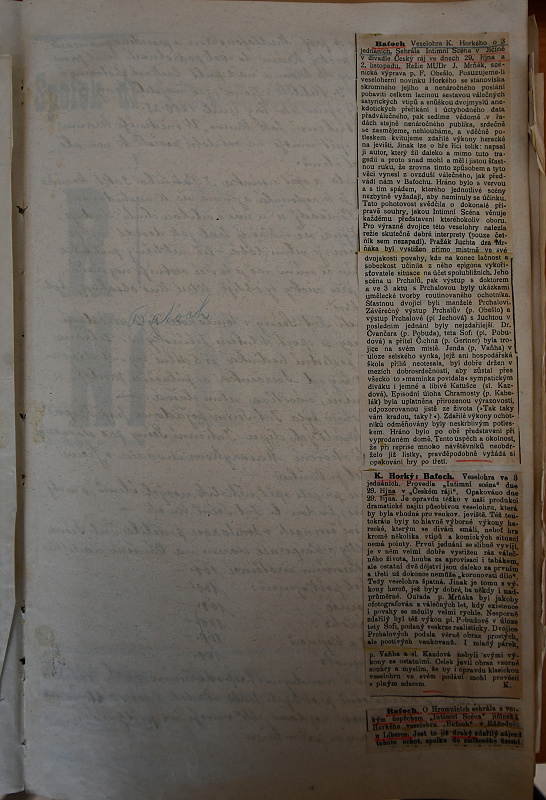 Batoch
Baťoch Veselohra K. Horkého o 3
jednáních. Sehrála Intimní Scéna v Jičíně
v divadle Český ráj ve dnech 29. října a
2. listopadu. Režie MUDr J. Mrňák, scé-
nická výprava p. F. Obešlo. Posuzujeme-li
veseloherní novinku Horkého se stanoviska
skromného jejího a nenáročného poslání
pobaviti celkem lacinou sestavou válečných
satyrických vtipů a snůškou dvojmyslů ane-
kdotických přeřikání i úctyhodného data
předválečného, pak sedíme vědomě v řa-
dách stejně nenáročného publika, srdečně
se zasmějeme, nehloubáme, a vděčně po-
tleskem kvitujeme zdařilé výkony herecké
na jevišti. Jinak lze o hře říci tolik: napsal
ji autor, který žil daleko a mimo tuto tra-
gedii a proto snad mohl a měl i jistou šťast-
nou ruku, že zrovna tímto způsobem a tyto
věci vynesl z ovzduší válečného, jak před-
vádí nám v Baťochu. Hráno bylo s vervou
a s tím spádem, kterého jednotlivé scény
nezbytně vyžadají, aby neminuly se účinku.
Tato pohotovost svědčila o dokonalé pří-
pravě souhry, jakou Intimní Scéna věnuje
každému představení kteréhokoliv oboru.
Pro výrazné dvojice této veselohry nalezla
režie skutečně dobré interprety (pouze čet-
ník sem nezapadl). Pražák Juchta dra Mr-
ňáka byl vystižen přímo mistrně ve své
dvojakosti povahy, kde na konec lačnost a
sobeckost učinila z něho epigona vykoři-
sťovatele situace na účet spolubližních. Jeho
scéna u Prchalů, pak výstup s doktorem
a ve 3 aktu s Prchalovou byly ukázkami
umělecké tvorby routinovaného ochotníka.
Šťastnou dvojicí byli manželé Prchalovi.
Závěrečný výstup Prchalův (p. Obešlo) a
výstup Prchalové (pí Jechová) s Juchtou v
posledním jednání byly nejzdařilejší. Dr.
Čvančara (p. Pobuda), teta Sofi (pí. Pobu-
dová) a přítel Cichna (p. Gertner) byla tro-
jice na svém místě. Jenda (p. Vaňha) v
úloze selského synka, jejž ani hospodářská
škola příliš neotesala, byl dobře držen v
mezích dobrosrdečnosti, aby zůstal přes
všecko to »maminka povídala« sympatickým
diváku i jemné a líbivé Katušce (sl. Kaz-
dová). Episodní úloha Chramosty (p. Kabe-
lák) byla uplatněna přirozenou výrazovostí,
odpozorovanou jistě ze života (»Tak taky
vám kradou, taky?«). Zdařilé výkony ochot-
níků odměňovány byly neskrblivým potles-
kem. Hráno bylo po obě představení při
vyprodaném domě. Tento úspěch a okolnost,
že při reprise mnoho návštěvníků neobdr-
želo již lístky, pravděpodobně vyžádá si
opakování hry po třetí.
K. Horký: Baťoch. Veselohra ve 3
jednáních. Provedla „Intimní scéna" dne
29. října v „Českém ráji". Opakováno dne
29. října. Je opravdu těžko v naší produkci
dramatické najíti působivou veselohru, která
by byla vhodná pro venkov. jeviště. Též ten-
tokráte byly to hlavně výborné výkony he-
recké, kterým se divám smáli, neboť hra
kromě několika vtipů a komických situací
nemá pointy. První jednání se slibně vyvíjí,
je v něm velmi dobře vystižen ráz váleč-
ného života, honba za aprovisací i tabákem,
ale ostatní dvě dějství jsou daleko za prvním
a třetí už dokonce nemůže „korunovati dílo".
Tedy veselohra špatná. Jinak je tomu s vý-
kony herců, jež byly dobré, ba někdy i nad-
průměrné. Ouřada p. Mrňáka byl jakoby
ofotografován z válečných let, kdy existence
i povahy se měnily velmi rychle. Nesporně
zdařilý byl též výkon pí. Pobudové v úloze
tety Sofi, podaný veskrze realisticky. Dvojice
Prchalových podala věrné obraz prostých,
ale poctivých venkovanů. I mladý párek,
p. Vaňha a sl. Kazdová nebyli svými vý-
kony za ostatními. Celek jevil obraz vzorné
souhry a myslím, že by i opravdu klasickou
veselohru ve svém podání mohl provésti
s plným zdarem. K.
Baťoch. O Hromnicích sehrála s vel-
kým úspěchem „Intimní Scéna" jičínská
Horkého veselohru „Baťoch" v
u Liberce. Jest to již druhý zdařilý zájezd
tohoto ochot. spolku do území.